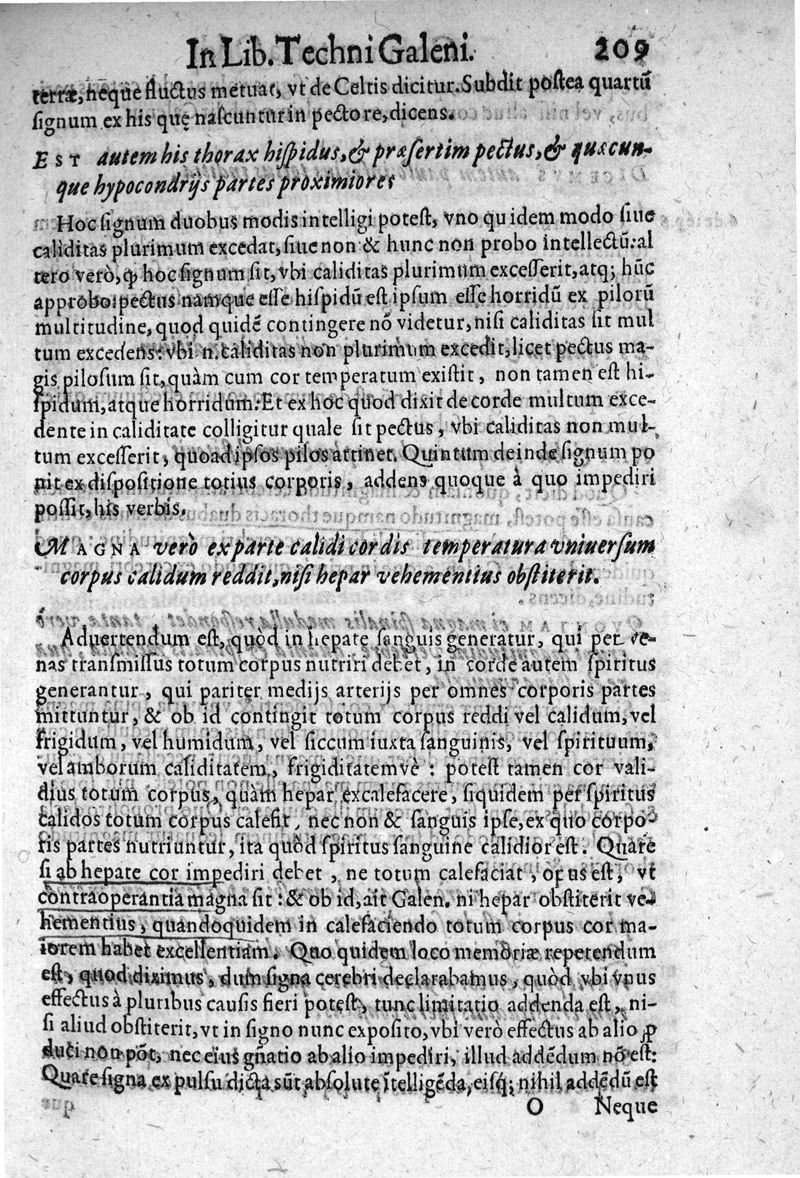 In Lib. Techni Galeni. 209
terræ, neque fluctus metuat, vt de Celtis dicitur. Subdit postea quartũ
signum ex his quę nascuntur in pectore, dicens.
EST autem his thorax hispidus, & præsertim pectus, & quæcun-
que hypocondrijs partes proximiores
Hoc signum duobus modis intelligi potest, vno quidem modo siue
caliditas plurimum excedat, siue non & hunc non probo intellectũ: al
tero verò, ꝙ hoc signum sit, vbi caliditas plurimum excesserit, atq; hũc
approbo: pectus namque esse hispidũ est ipsum esse horridũ ex pilorũ
multitudine, quod quidẽ contingere nõ videtur, nisi caliditas sit mul
tum excedens: vbi .n. caliditas non plurimum excedit, licet pectus ma-
gis pilosum sit, quàm cum cor temperatum existit, non tamen est hi-
spidum, atque horridum: Et ex hoc quod dixit de corde multum exce-
dente in caliditate colligitur quale sit pectus, vbi caliditas non mul-
tum excesserit, quoad ipsos pilos attinet. Quintum deinde signum po
nit ex dispositione totius corporis, addens quoque à quo impediri
possit, his verbis.
MAGNA verò ex parte calidi cordis temperatura vniuersum
corpus calidum reddit, nisi hepar vehementius obstiterit.
Aduertendum est, quòd in hepate sanguis generatur, qui per ve-
nas transmissus totum corpus nutriri debet, in corde autem spiritus
generantur, qui pariter medijs arterijs per omnes corporis partes
mittuntur, & ob id contingit totum corpus reddi vel calidum, vel
frigidum, vel humidum, vel siccum iuxta sanguinis, vel spirituum,
vel amborum caliditatem, frigiditatemvè: potest tamen cor vali-
dius totum corpus, quàm hepar excalefacere, siquidem per spiritus
calidos totum corpus calefit, nec non & sanguis ipse, ex quo corpo
ris partes nutriuntur, ita quòd spiritus sanguine calidior est. Quare
si ab hepate cor impediri debet, ne totum calefaciat, opus est, vt
contraoperantia magna sit: & ob id, ait Galen. ni hepar obstiterit ve-
hementius, quandoquidem in calefaciendo totum corpus cor ma-
iorem habet excellentiam. Quo quidem loco memoriæ repetendum
est, quod diximus, dum signa cerebri declarabamus, quòd vbi vnus
effectus à pluribus causis fieri potest, tunc limitatio addenda est, ni-
si aliud obstiterit, vt in signo nunc exposito, vbi verò effectus ab alio ꝓ
duci non põt, nec eius gñatio ab alio impediri, illud addẽdum nõ est:
Quare signa ex pulsu dicta sũt absolute ĩtelligẽda, eisq́; nihil addẽdũ est
O Neque